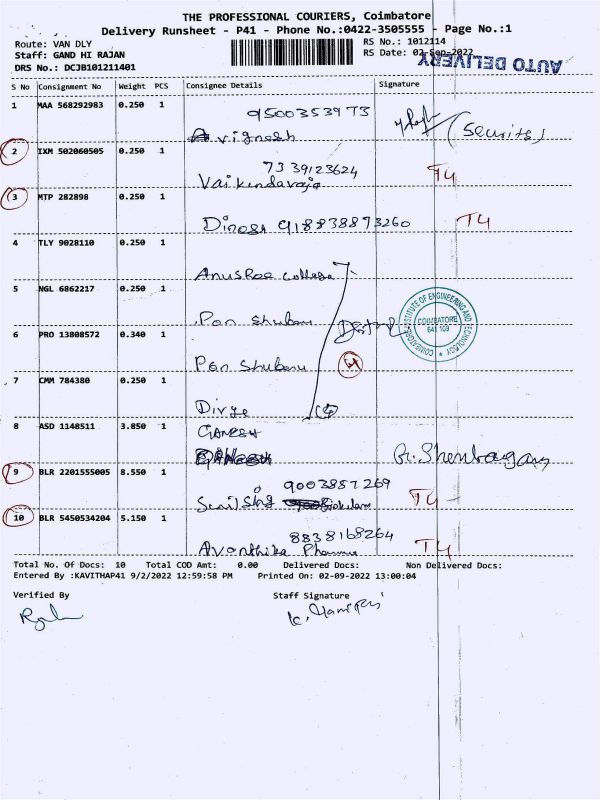 THE PROFESSIONAL COURIERS, Coimbatore
Delivery Runsheet - P41 - Phone No.:0422-3505555 - Page No.:1
Route: VAN DLY
Staff: GAND HI RAJAN
DRS No.: DCJB101211401
RS No.: 1012114
RS Date: 02-Sep-2022
AUTO DELIVERY
S No Consignment No Weight PCS Consignee Details Signature
1 MAA 568292983 0.250 1
Vignesh (Security)
2 IXM 502060505 0.250 1 7339123624 T4
3 MTP 282898 0.250 1
Dinesh 918838873260 T4
4 TLY 9028110 0.250 1
Anushree college
5 NGL 6862217 0.250 1
Pon Shubam
6 PRO 13808572 0.340 1
Pon Shubam
COIMBATORE INSTITUTE OF ENGINEERING AND TECHNOLOGY
COIMBATORE
641 109
7 CMM 784380 0.250 1
Divya
8 ASD 1148511 3.850 1
GANESH
9 BLR 2201555005 8.550 1 9003887269
T4
10 BLR 5450534204 5.150 1 8838168264
Avanthika Pharma T4
Total No. Of Docs: 10 Total COD Amt: 0.00 Delivered Docs: Non Delivered Docs:
Entered By :KAVITHAP41 9/2/2022 12:59:58 PM Printed On: 02-09-2022 13:00:04
Verified By Staff Signature